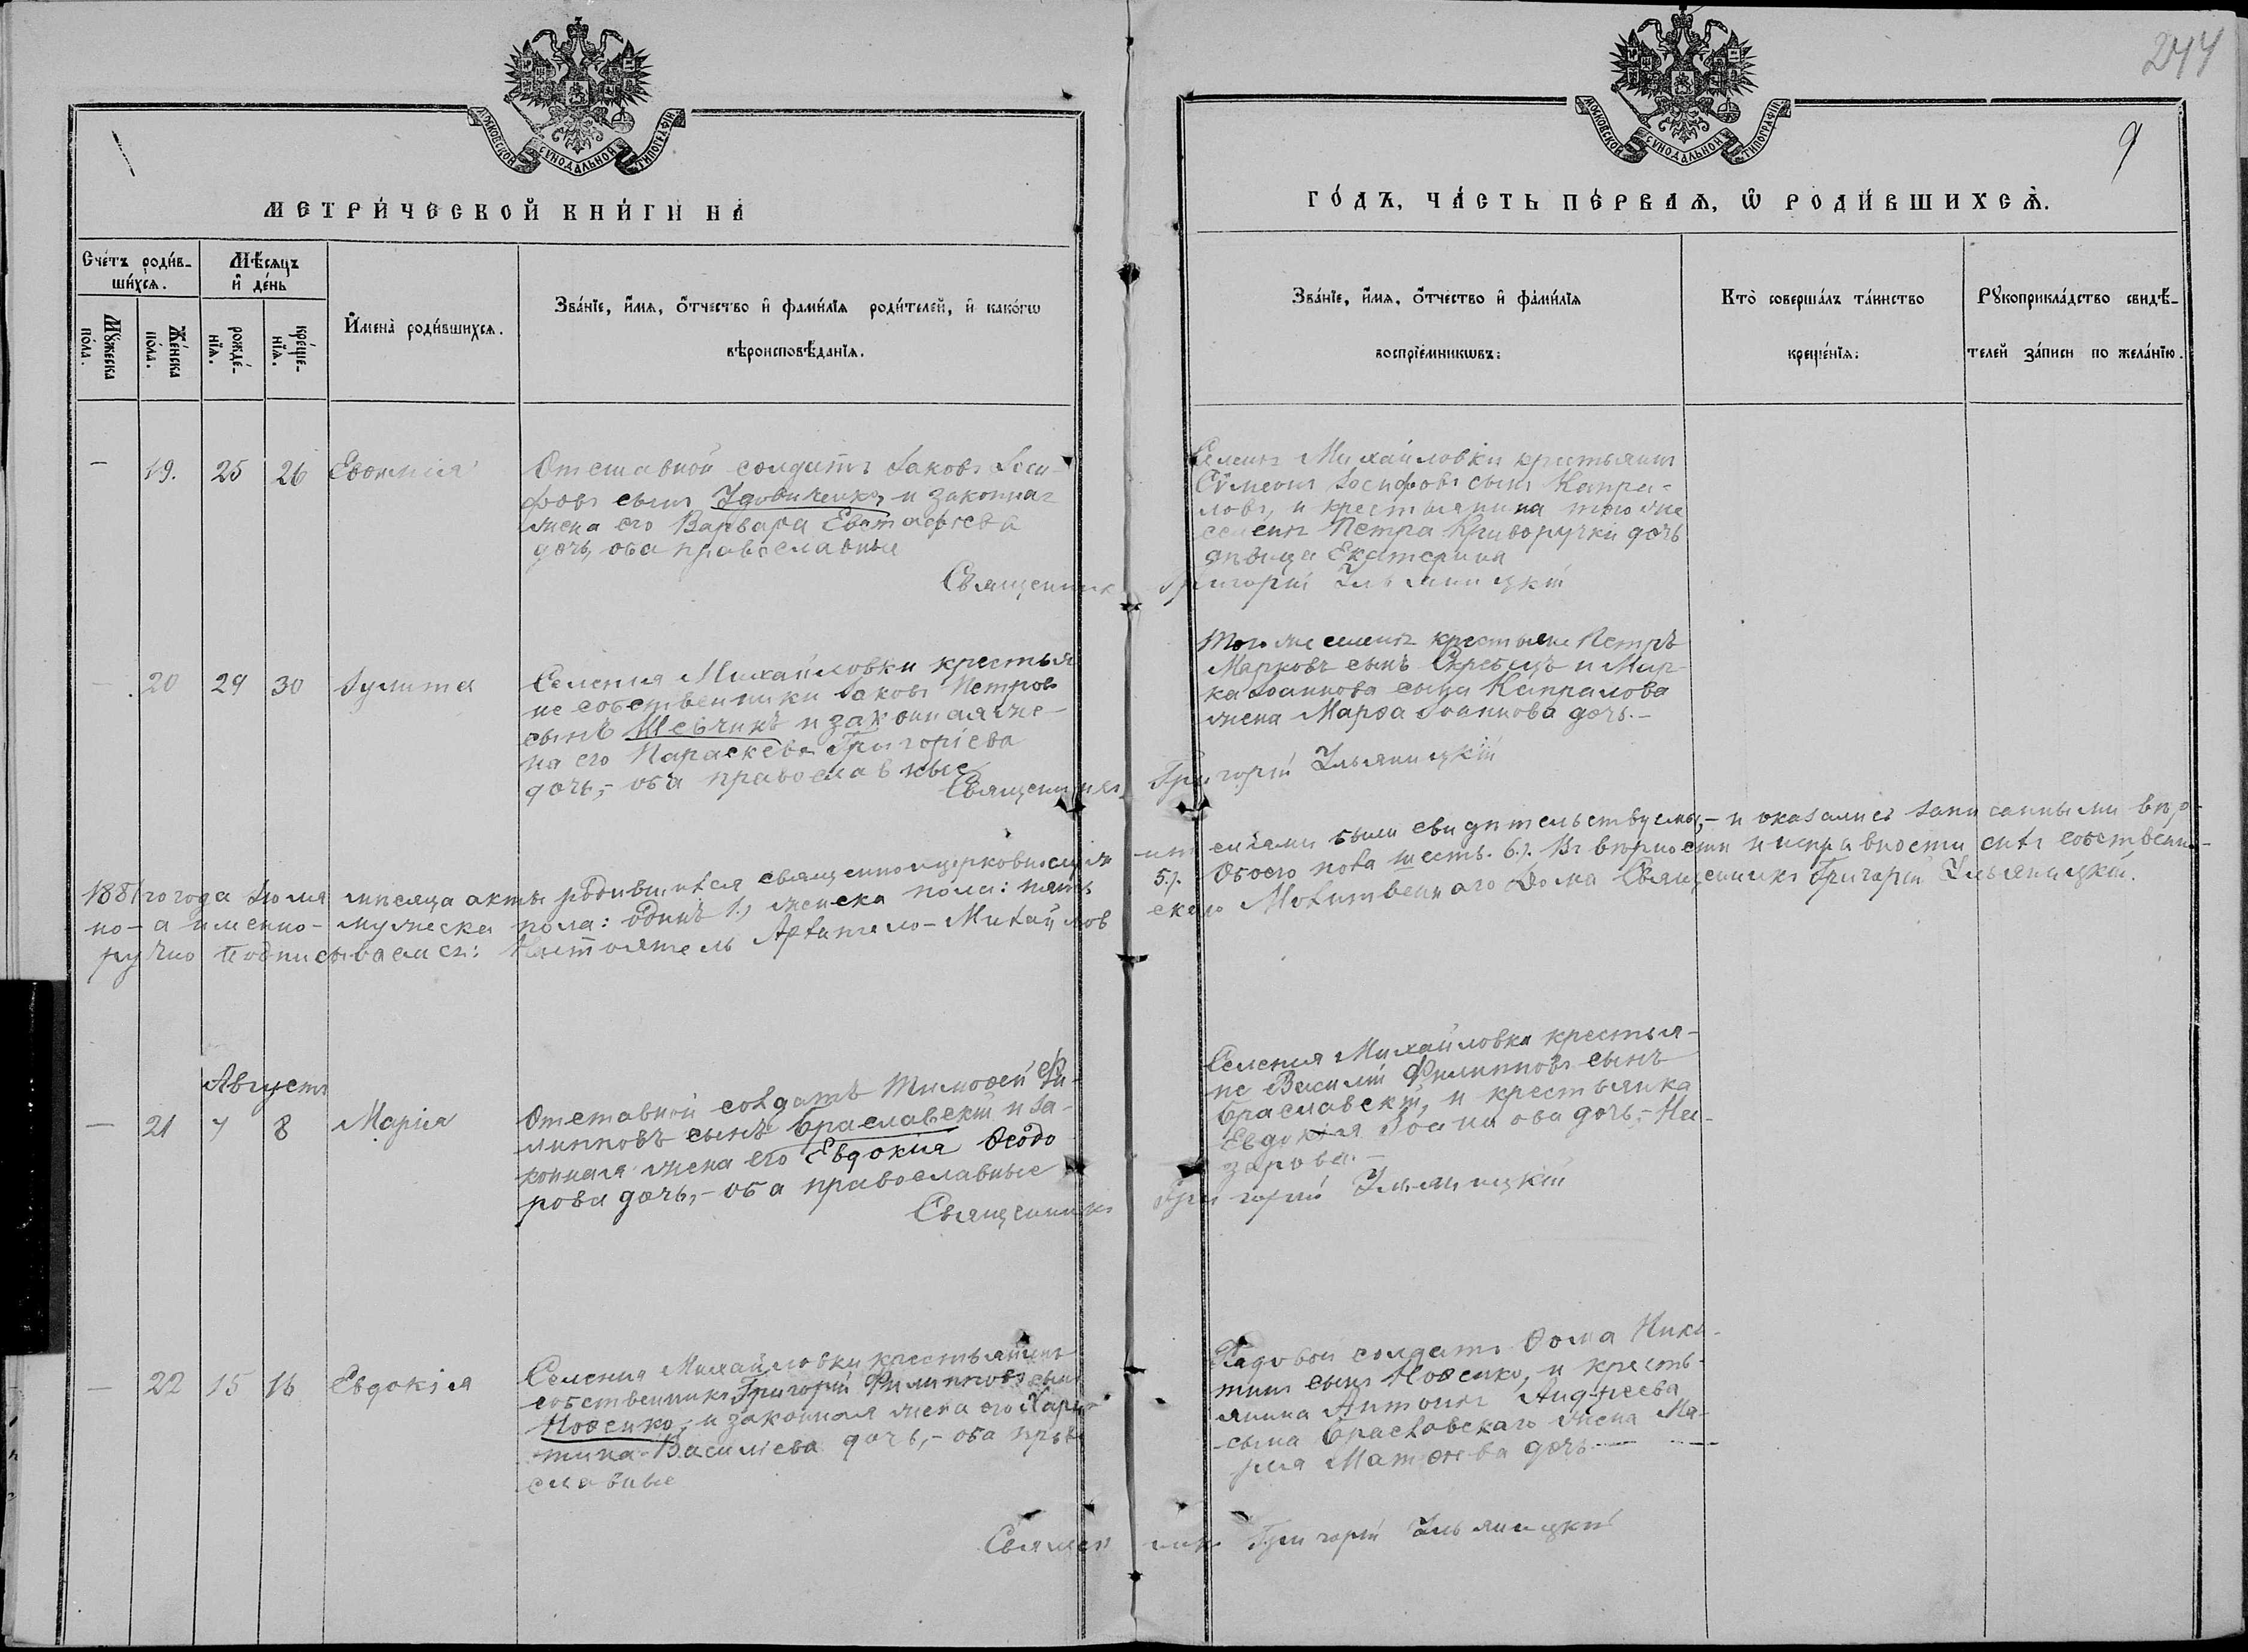 244
9
МОСКОВСКОЙ СѴНОДАЛЬНОЙ ТИПОГРАФІИ
МОСКОВСКОЙ СѴНОДАЛЬНОЙ ТИПОГРАФІИ
МЕТРИ́ЧЕСКОЙ КНИ́ГИ НА̀
ГО́ДЪ, ЧА́СТЬ ПЕ́РВАѦ, Ѡ҆ РОДИ́ВШИХСѦ.
Сче́тъ роди́в-
ши́хсѧ.
Мꙋ́жеска
по́ла.
Же́нска
по́ла.
Мѣ́сяцъ
и҆ де́нь
рожде́-
нїѧ.
креще́-
нїѧ.
И҆мена̀ роди́вшихсѧ.
Зва́нїе, и҆́мѧ, ѻ҆́тчество и҆ фами́лїѧ роди́телей, и҆ како́гѡ
вѣроисповѣ́данїѧ.
Зва́нїе, и҆́мѧ, ѻ҆́тчество и҆ фами́лїѧ
воспрїе́мникѡвъ:
Кто̀ соверша́лъ та́инство
креще́нїѧ:
Рꙋкоприкла́дство свидѣ́-
телей за́писи по жела́нїю.
— 19. 25 26 Евѳимія
Отставной солдатъ Іаковъ Іоси-
фовъ сынъ Удовиченко, и законная
жена его Варвара Евстафіева
дочь, оба православные
Селенія Михайловки крестьянинъ
Сѵмеонъ Іосифовъ сынъ Капра-
ловъ, и крестьянина того же
селенія Петра Криворучки дочь
дѣвица Екатерина
Священникъ Григорій Ульяницкій
— 20 29 30 Іулита
Селенія Михайловки крестья
не собственники Іаковъ Петровъ
сынъ Шевчикъ и законная же-
на его Параскева Григоріева
дочь,- оба православные
Того же селенія крестьяне Петръ
Марковъ сынъ Скребецъ и Мар-
ка Іоаннова сына Капралова
жена Марѳа Іоаннова дочь.-
Священникъ Григорій Ульяницкій
1881 го года Іюля мѣсяца акты родившихся священноцерковнослужителями были свидѣтельствуемы,- и оказались записанными вѣр-
но- а именно- мужеска пола: одинъ 1., женска пола: пять 5.). Обоего пола шесть. 6.). Въ вѣрности и исправности сихъ собственно-
ручно подписываемся: Настоятель Архангело-Михайловскаго Молитвеннаго Дома Священникъ Григорій Ульяницкій.
Августъ
— 21 7 8 Марія
Отставной солдатъ Тимоѳей Фи-
липповъ сынъ Браславскій и за-
конная жена его Евдокія Ѳеодо
рова дочь,- оба православные
Селенія Михайловки крестья-
не Василій Филипповъ сынъ
Браславскій, и крестьянка
Евдокія Іоаннова дочь,- На-
зарова.-
Священникъ Григорій Ульяницкій
— 22 15 16 Евдокія
Селенія Михайловки крестьянинъ
собственникъ Григорій Филипповъ сынъ
Мовенко, и законная жена его Хари-
тина Василіева дочь,- оба право
славные
Рядовой солдатъ Ѳома Ники-
тинъ сынъ Мовенко, и кресть-
янина Антонія Андреева
сына Браславскаго жена Ма-
рія Матѳеева дочь — —
Священникъ Григорій Ульяницкій